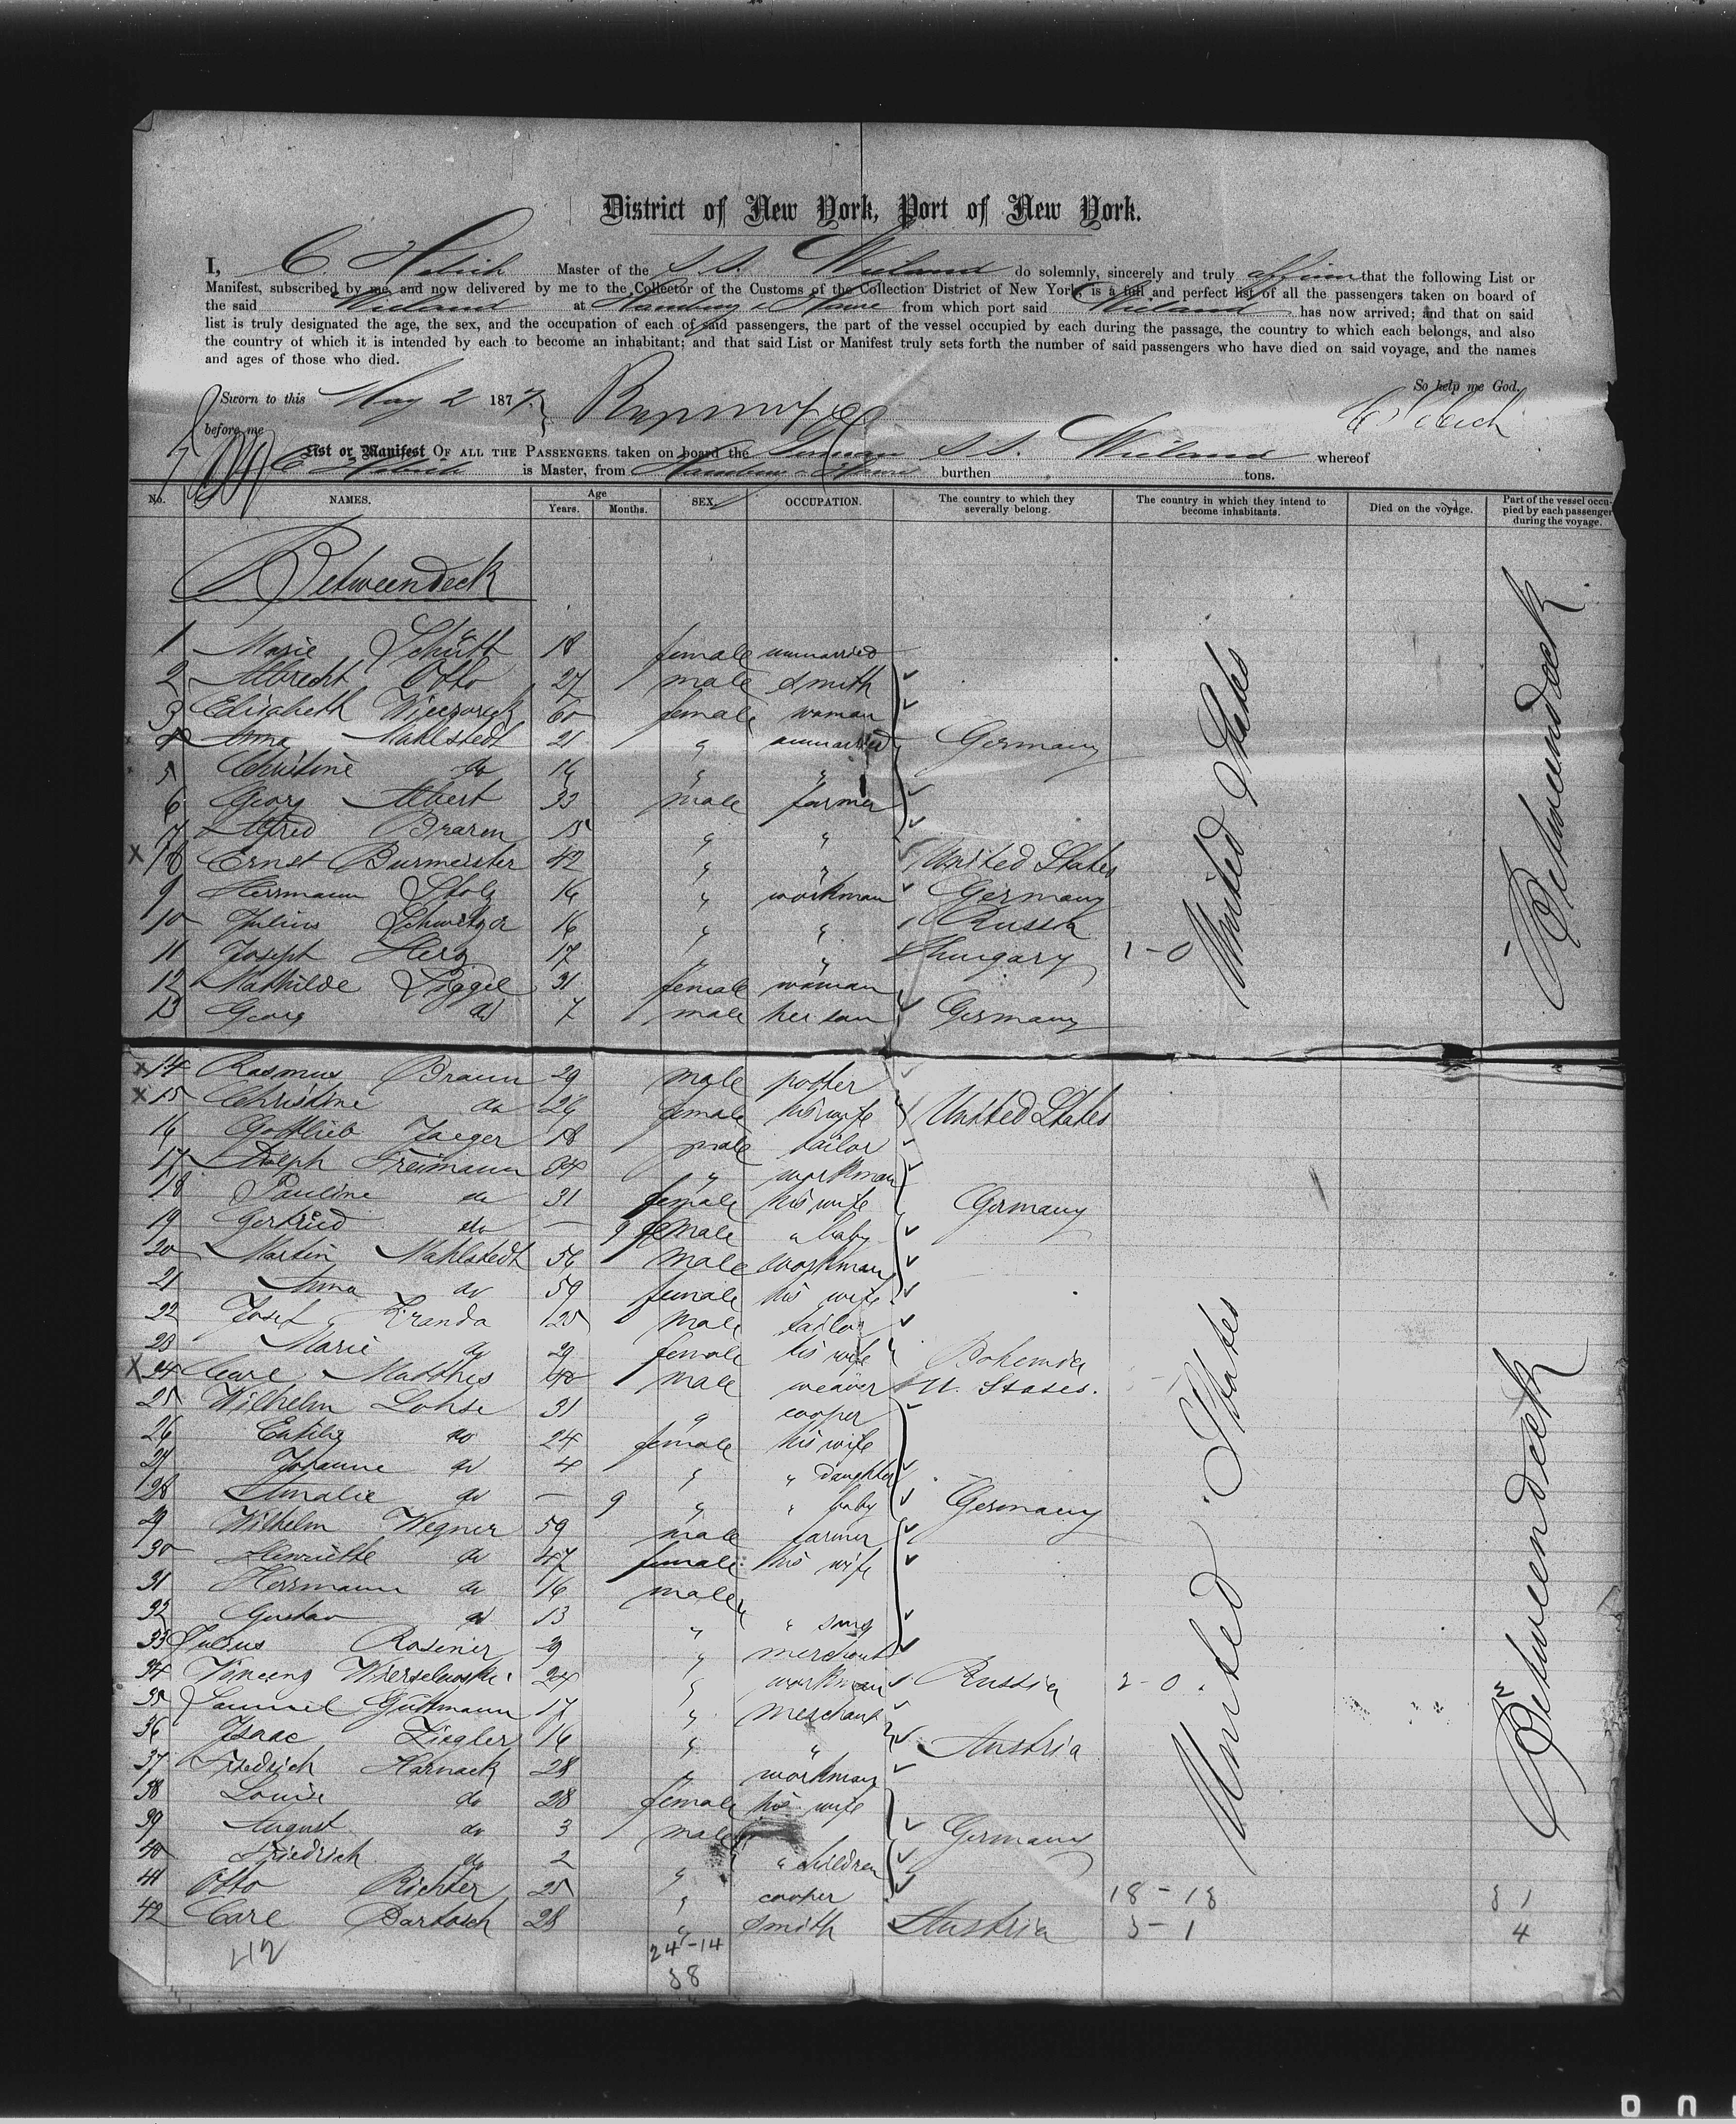 District of New York, Port of New York.
I, C. Hebich Master of the S. S. Wieland do solemnly, sincerely and truly affirm that the following List or
Manifest, subscribed by me, and now delivered by me to the Collector of the Customs of the Collection District of New York, is a full and perfect list of all the passengers taken on board of
the said Wieland at Hamburg & Havre from which port said Wieland has now arrived; and that on said
list is truly designated the age, the sex, and the occupation of each of said passengers, the part of the vessel occupied by each during the passage, the country to which each belongs, and also
the country of which it is intended by each to become an inhabitant; and that said List or Manifest truly sets forth the number of said passengers who have died on said voyage, and the names
and ages of those who died.
So help me God.
Sworn to this May 2 187
C Hebich
before me
List or Manifest OF ALL THE PASSENGERS taken on board the German S. S. Wieland whereof
C Hebich is Master, from Hamburg & Havre burthen tons.
No. NAMES. Age Years. Months. SEX. OCCUPATION. The country to which they severally belong. The country in which they intend to become inhabitants. Died on the voyage. Part of the vessel occupied by each passenger during the voyage.
Betweendeck
1 Marie Schütt 18 female unmarried
2 Albrecht Otto 27 male smith
3 Elisabeth 60 female woman
4 Anna Mahlstedt 21 " unmarried Germany
5 Christine do 16 " "
6 Georg Albert 33 male farmer
7 Alfred Braren 15 " "
X 8 Ernst Burmeister 42 " " United States
9 Herrmann Stolz 16 " workman Germany
10 Julius 16 " " Russia
11 Joseph Herz 17 " " Hungary 1-0
12 Mathilde 31 female woman
13 Georg do 7 male her son Germany
United States
Betweendeck
X 14 Rasmus Braun 29 male potter
X 15 Christine do 26 female his wife United States
16 Gottlieb Jaeger 18 male tailor
17 Adolph Freimann 34 " workman
18 Pauline do 31 female his wife Germany
19 do — 9 female " baby
20 Martin Mahlstedt 56 male workman
21 Anna do 59 female his wife
22 Josef Kranda 25 male tailor
23 Marie do 29 female his wife Bohemia
X 24 Carl Matthes 40 male weaver U. States.
25 Wilhelm Lohse 31 " cooper
26 do 24 female his wife
27 Johanne do 4 " " daughter
28 Amalie do — 9 " " baby Germany
29 Wilhelm Wegner 59 male farmer
30 Henriette do 47 female his wife
31 Herrmann do 16 male
32 Gustav do 13 " " sons
33 Julius Rosener 29 " merchant
34 Vincenz 24 " workman Russia 2-0
35 Samuel Guttmann 17 " merchant
36 Isaac Ziegler 16 " " Austria
37 Friedrich Harnack 28 " workman
38 Louise do 28 female his wife
39 August do 3 male Germany
40 Friedrich do 2 " " children
41 Otto Richter 25 " cooper 18-18
42 Carl Bartosch 28 " smith Austria 3-1 4
United States
Betweendeck
24-14
38